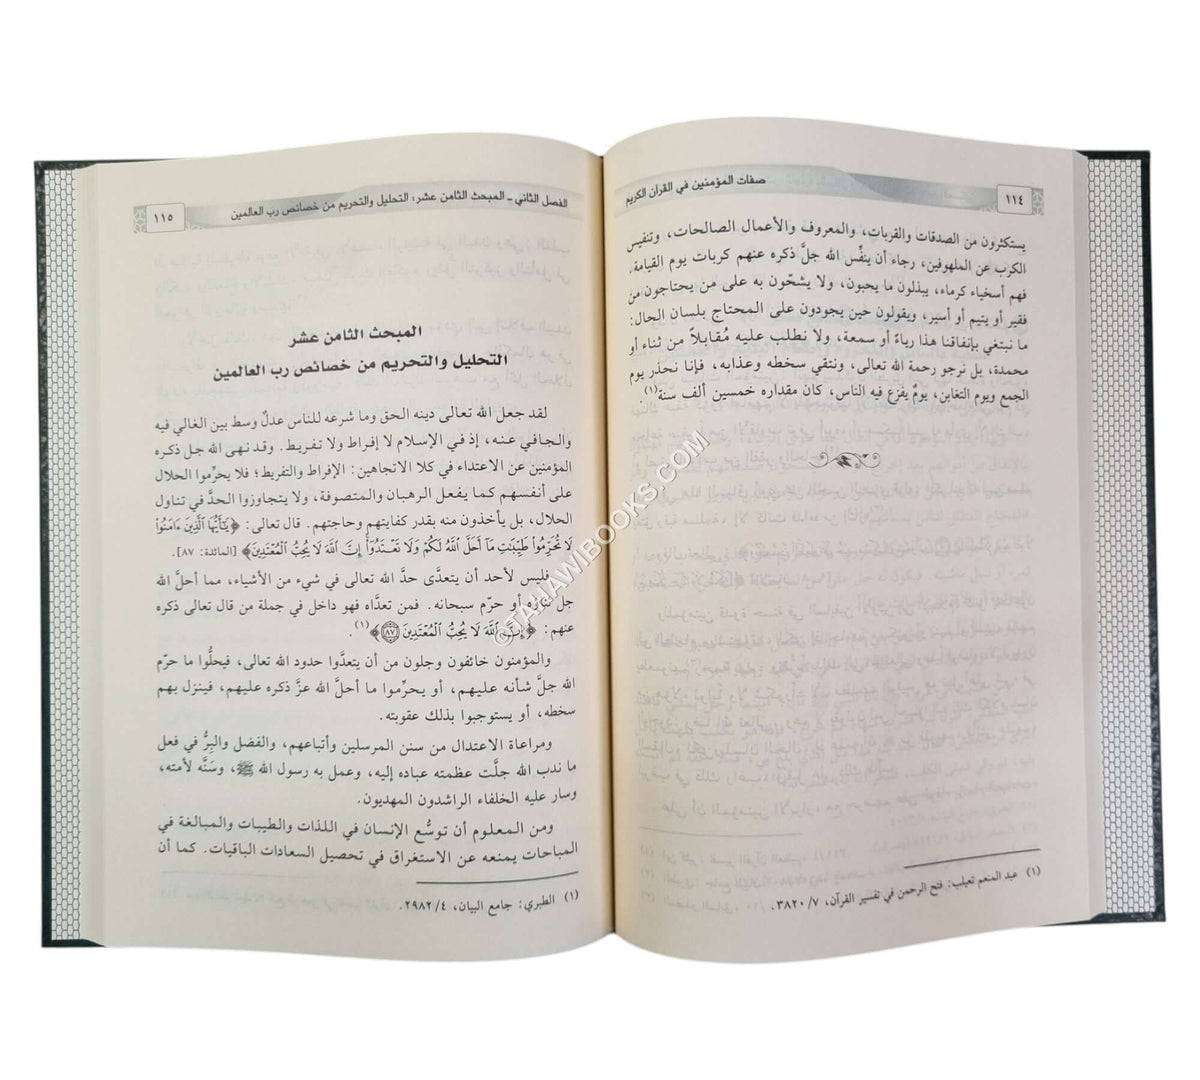 ١١٤
صفات المؤمنين في القرآن الكريم
يستكثرون من الصدقات والقربات، والمعروف والأعمال الصالحات، وتنفيس
الكرب عن الملهوفين، رجاء أن ينفِّس الله جلَّ ذكره عنهم كربات يوم القيامة.
فهم أسخياء كرماء، يبذلون ما يحبون، ولا يشحّون به على من يحتاجون من
فقير أو يتيم أو أسير، ويقولون حين يجودون على المحتاج بلسان الحال:
ما نبتغي بإنفاقنا هذا رياءً أو سمعة، ولا نطلب عليه مُقابلاً من ثناء أو
محمدة، بل نرجو رحمة الله تعالى، ونتقي سخطه وعذابه، فإنا نحذر يوم
الجمع ويوم التغابن، يومٌ يفزع فيه الناس، كان مقداره خمسين ألف سنة(١).
(١) عبد المنعم تعيلب: فتح الرحمن في تفسير القرآن، ٣٨٢٠/٧.
الفصل الثاني ـ المبحث الثامن عشر: التحليل والتحريم من خصائص رب العالمين
١١٥
المبحث الثامن عشر
التحليل والتحريم من خصائص رب العالمين
لقد جعل الله تعالى دينه الحق وما شرعه للناس عدلٌ وسط بين الغالي فيه
والجافي عنه، إذ في الإسلام لا إفراط ولا تفريط. وقد نهى الله جل ذكره
المؤمنين عن الاعتداء في كلا الاتجاهين: الإفراط والتفريط؛ فلا يحرِّموا الحلال
على أنفسهم كما يفعل الرهبان والمتصوفة، ولا يتجاوزوا الحدَّ في تناول
الحلال، بل يأخذون منه بقدر كفايتهم وحاجتهم. قال تعالى: ﴿يَٰٓأَيُّهَا ٱلَّذِينَ ءَامَنُوا۟
لَا تُحَرِّمُوا۟ طَيِّبَٰتِ مَآ أَحَلَّ ٱللَّهُ لَكُمْ وَلَا تَعْتَدُوٓا۟ إِنَّ ٱللَّهَ لَا يُحِبُّ ٱلْمُعْتَدِينَ﴾ [المائدة: ٨٧].
فليس لأحد أن يتعدَّى حدَّ الله تعالى في شيء من الأشياء، مما أحلَّ الله
جل ثناؤه أو حرّم سبحانه. فمن تعدَّاه فهو داخل في جملة من قال تعالى ذكره
عنهم: ﴿إِنَّ ٱللَّهَ لَا يُحِبُّ ٱلْمُعْتَدِينَ ٨٧﴾(١).
والمؤمنون خائفون وجلون من أن يتعدَّوا حدود الله تعالى، فيحلُّوا ما حرّم
الله جلَّ شأنه عليهم، أو يحرِّموا ما أحلَّ الله عزَّ ذكره عليهم، فينزل بهم
سخطه، أو يستوجبوا بذلك عقوبته.
ومراعاة الاعتدال من سنن المرسلين وأتباعهم، والفضل والبِرُّ في فعل
ما ندب الله جلَّت عظمته عباده إليه، وعمل به رسول الله ﷺ، وسَنَّه لأمته،
وسار عليه الخلفاء الراشدون المهديون.
ومن المعلوم أن توسُّع الإنسان في اللذات والطيبات والمبالغة في
المباحات يمنعه عن الاستغراق في تحصيل السعادات الباقيات. كما أن
(١) الطبري: جامع البيان، ٢٩٨٢/٤.
©TAHAWIBOOKS.COM